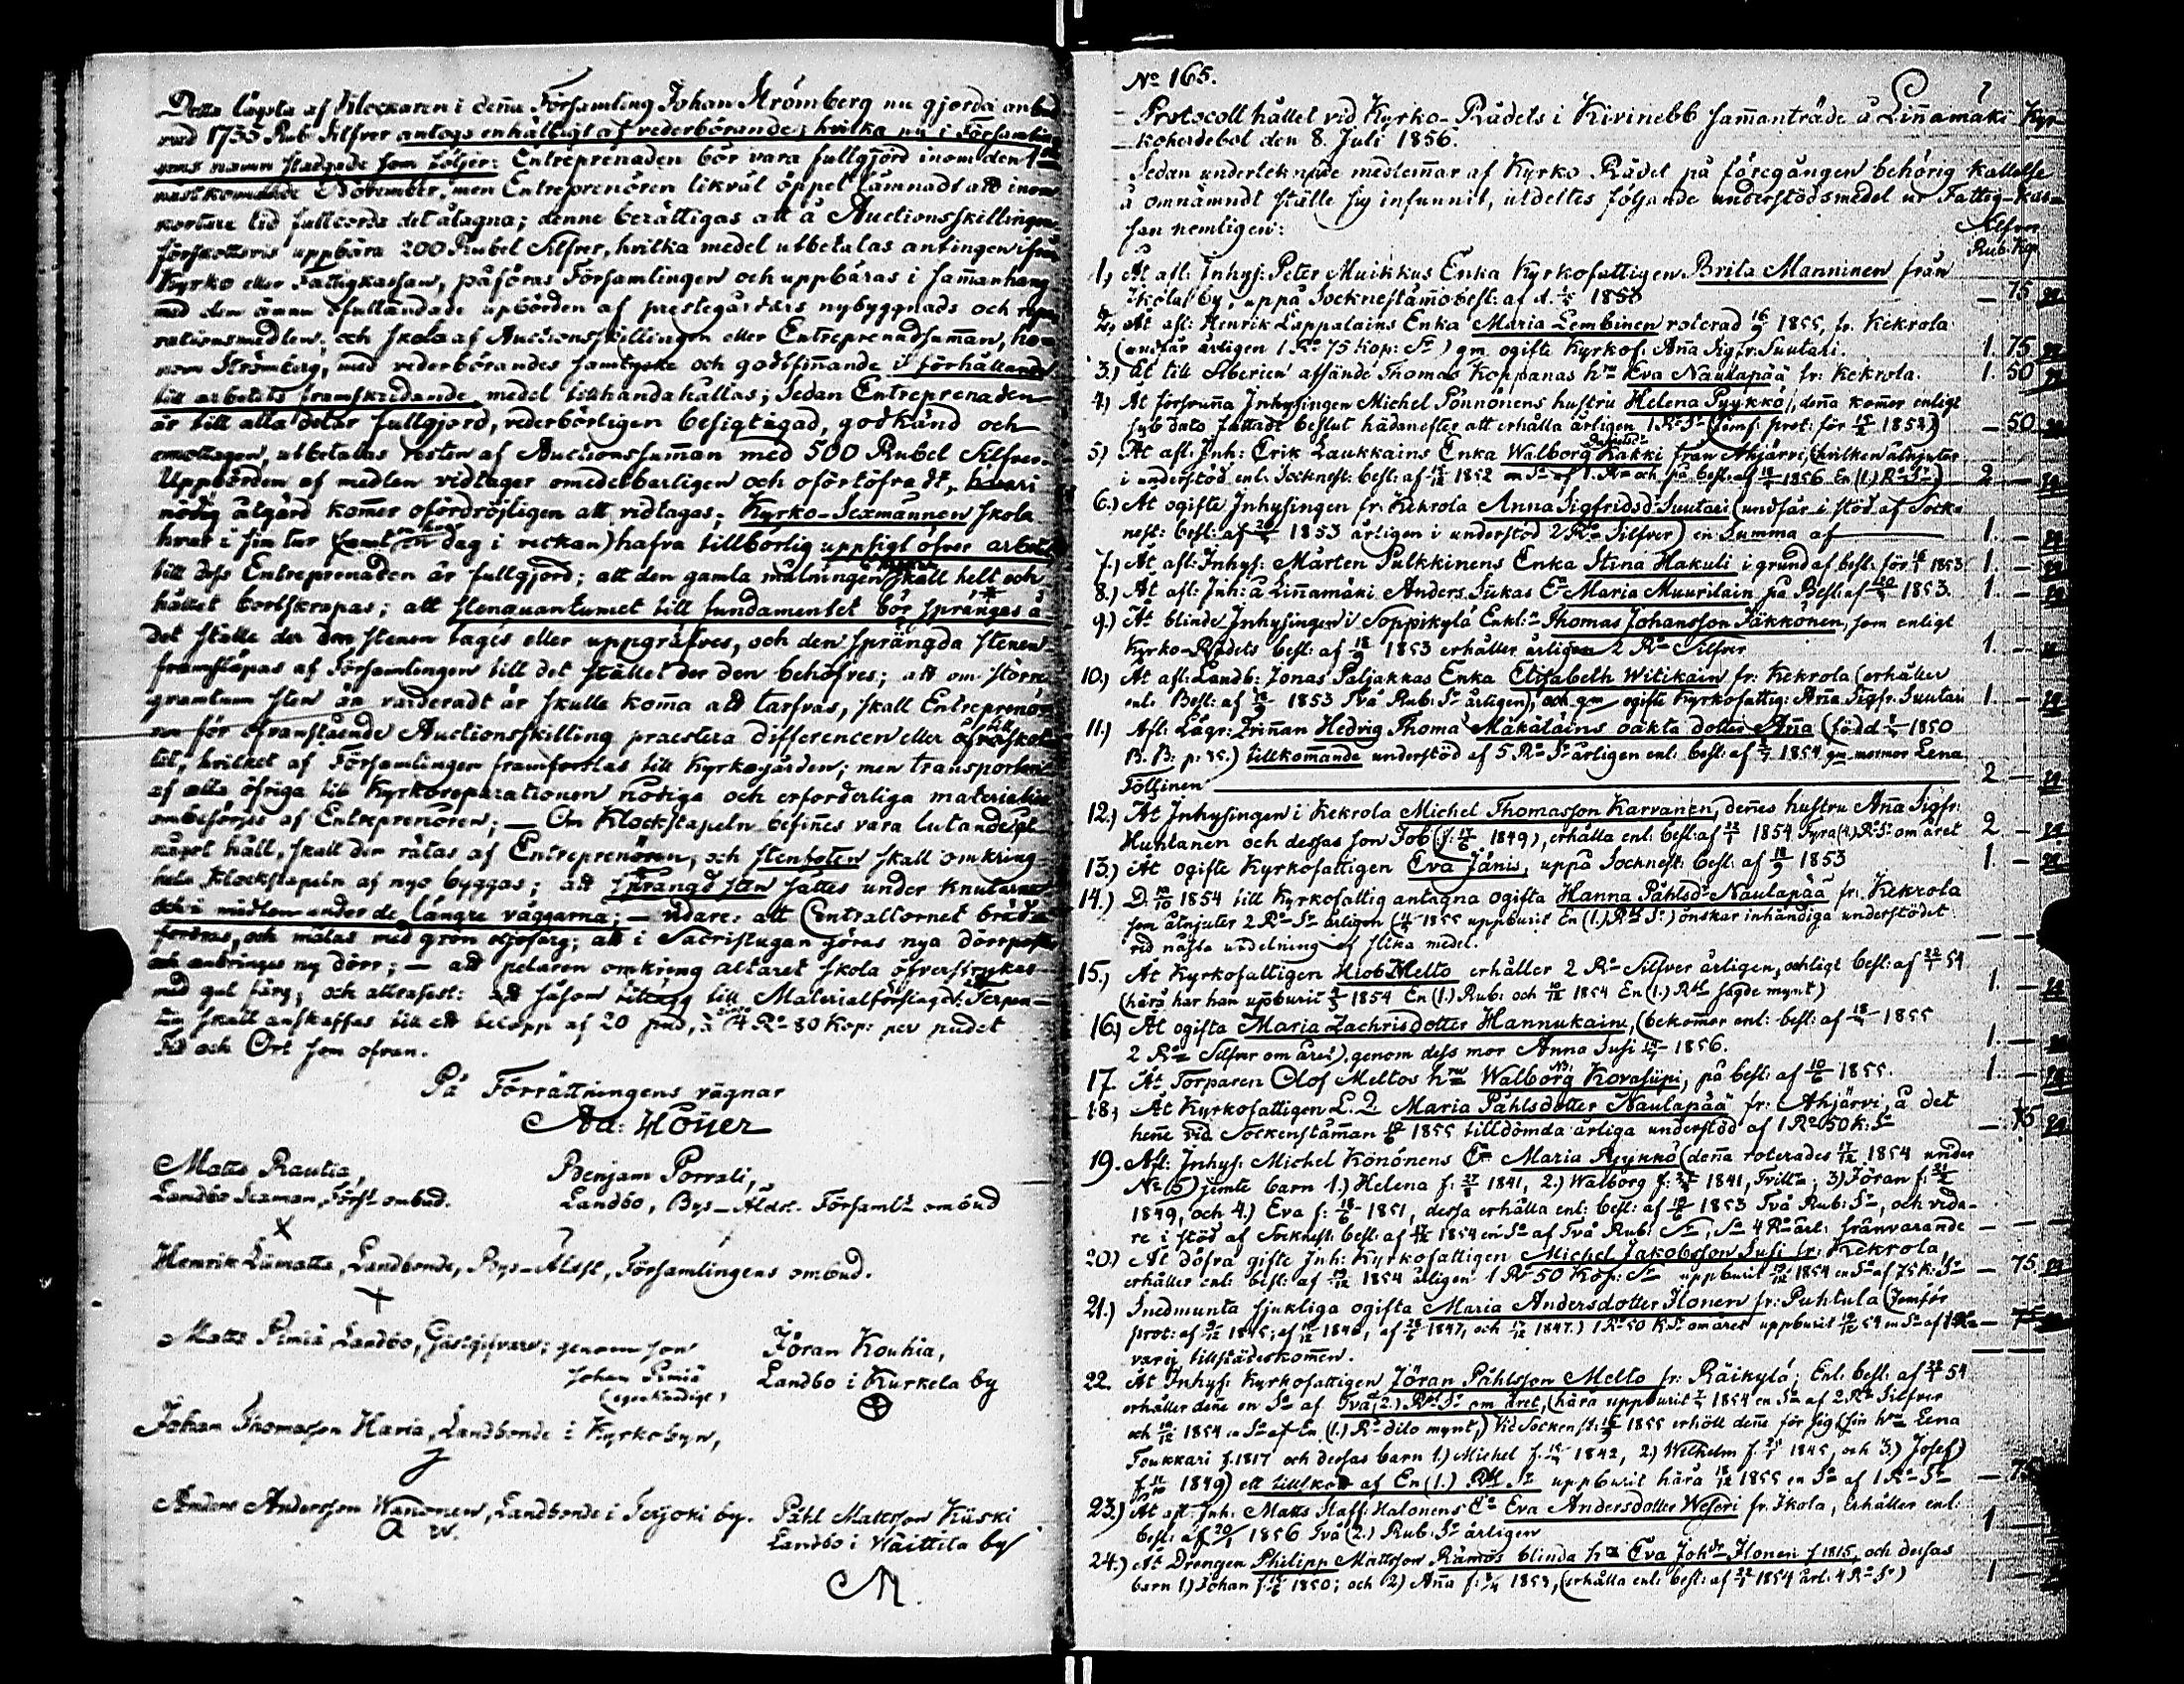 Detta lägsta af Klockaren i denna Församling Johan Strömberg nu gjorda anbud
1735 Rub Silfver antogs enhälligt af vederbörande; hvilka nu i Församlin
gens namn stadgade som följer: Entreprenaden bör vara fullgjord inom den 1
nästkommande November, men Entreprenören likväl öppet lämnadt att inom
kortare tid fullborda det åtagna; denne berättigas att å Auctionsskillingen
förskottsvis uppbära 200 Rubel Silfver, hvilka medel utbetalas antingen ifrån
Kyrko eller Fattigkassan, påföras Församlingen och uppbäras i sammanhang
med den ännu ofulländade upbörden af prestegårdars nybyggnads och repa
rationsmedlen; och skola af Auctionsskillingen eller Entreprenadsumman, ho
nom Strömberg, med vederbörandes samtycke och godtfinnande i förhållande
till arbetets framskridande medel tillhandahållas; Sedan Entreprenaden
är till alla delar fullgjord, vederbörligen besigtigad, godkänd och
emottagen, utbetalas resten af Auctionssumman med 500 Rubel Silfver.
Uppbörden af medlen vidtager omedelbarligen och oförtöfvadt, hvari
nödig åtgärd kommer ofördröjligen att vidtagas; Kyrko-Sexmännen skola
hvar i sin tur (samt en hvar dag i veckan) hafva tillbörlig uppsigt öfver arbetet
till dess Entreprenaden är fullgjord; att den gamla målningen skall helt och
hållet bortskrapas; att stenquantumet till fundamentet bör sprängas å
det ställe der den stenen tages eller uppgräfves, och den sprängda stenen
framsläpas af Församlingen till det stället der den behöfves; att om större
qvantum sten än värderadt är skulle komma att tarfvas, skall Entreprenör
en för ofvanstående Auctionsskilling præstera differencen eller öfverskot
tet, hvilket af Församlingen framforslas till Kyrkogården; men transporten
af alla öfriga till Kyrkoreparationen nödiga och erforderliga materialier
ombesörjes af Entreprenören; — Om Klockstapeln befinnes vara lutande åt
något håll, skall den rätas af Entreprenören, och stenfoten skall omkring
hela Klockstapeln af nyo byggas; att sprängd sten sättes under knutarne
och i midten under de längre väggarna; — vidare: att Centraltornet bräd
fordras, och målas med grön oljefärg; att i Sacristugan göras nya dörrposter
och anbringas ny dörr; — att pelaren omkring altaret skola öfverstrykas
med gul färg; och alltsist: att såsom tillägg till Materialförslaget: Terpen-
tin skall anskaffas till ett belopp af 20 pud, à 4 Ro 80 Kop: per pudet
Tid och Ort som ofvan.
På Förrättningens vägnar
Ad: Höijer
Matts Rautia,
Landbo Sexman, Förs: ombud.
Benjam Porrali,
Landbo, Bys-Äldst. Förs:amls ombud
X
Henrik Liimatta, Landbonde, Bys-Äldst, Församlingens ombud.
X
Matts Pimiä Landbo, Gästgifvare; genom son
Johan Pimiä
(egenhändigt)
Jöran Kouhia,
Landbo i Kurkela by
Johan Thomasson Haria, Landbonde i Kyrkobyn,
Anders Andersson Wanonen, Landbonde i Terijoki by.
A W.
Påhl Mattsson Kiiski
Landbo i Wäittilä by
M.
No 165.
Protocoll hållet vid Kyrko-Rådets i Kivinebb sammanträde å Linnamäki Kyr-
koherdebol den 8. Juli 1856.
Sedan undertecknade medlemmar af Kyrko Rådet på föregången behörig kallelse
å omnämndt ställe sig infunnit, utdeltes följande understödsmedel ur Fattig-Kas-
san nemligen:
Silfver
Rub. Kop
1, At afl: Inhys: Peter Muikkus Enka Kyrkofattigen Brita Manninen från
Ikola by, uppå Sockneståmobesl: af d. 1853 — 75
2, At afl: Henrik Lappalains Enka Maria Lembinen roterad 16/9 1855, fr. Kekrola
(undfår årligen 1 Ro 75 Kop: Sr) gm ogifte Kyrkof. Anna Sigfr. Suutari. 1. 75
3.) åt till Siberien afsände Thomas Koppanas hru Eva Naulapää fr: Kekrola. 1. 50
4.) At försvunna Inhysingen Michel Pönnönens hustru Helena Pyykkö, denna kommer enligt
dato fattadt beslut hädanefter att erhålla årligen 1. Ro Sr (Jemf: prot: för 1852) — 50
5) At afl: Inh: Erik Laukkains Enka Walborg Lakki från Ahjärvi, (hvilken åtnjuter
i understöd enl. Socknest: besl: af 1852 en Sa af 1. Ro och på besl: af 1856 En (1.) Ro Sr) 2 —
6.) At ogifte Inhysingen fr: Kekrola Anna Sigfridsd: Suutari (undfår i stöd af Sock-
nest: besl: af 1853 årligen i understöd 2 Ro Silfver) en Summa af 1. —
7.) At afl: Inhys: Mårten Pulkkinens Enka Stina Hakuli i grund af besl: för 1853 1. —
8.) At afl: Inh: å Linnamäki Anders Sukas Ea Maria Muurilain på Besl: af 20 1853. 1. —
9.) At blinde Inhysingen i Soppikylä Enkl: Thomas Johansson Jäkkönen, som enligt
Kyrko-Rådets besl: af 18/9 1853 erhåller årligen 2 Ro Silfver 1. —
10.) At afl: Landb: Jonas Paljakkas Enka Elisabeth Witikain fr: Kekrola (erhåller
enl: Besl: af 1853 Två Rub: Sr årligen), och gm ogifte Kyrkofattig: Anna Sigfr. Suutari 1. —
11.) Afl: Lägr: Qvinnan Hedvig Thoma Mäkäläins oäkta dotter Anna (född 1850
B. B: p: 35.) tillkommande understöd af 5 Ro Sr årligen enl: besl: af 1854 gm mormor Lena
Tölsinen 2 —
12.) At Inhysingen i Kekrola Michel Thomasson Karvanen, dennes hustru Anna Sigfr:
Huhtanen och dessas son Job (f: 17/6 1849), erhålla enl: besl: af 1854 Fyra (4.) Ro Sr om året 2 —
13.) At ogifte Kyrkofattigen Eva Jänis, uppå Socknest: besl: af 18/9 1853 1. —
14.) D. 1854 till Kyrkofattig antagna ogifta Hanna Påhlsdr Naulapää fr: Kekrola
som åtnjuter 2 Ro Sr årligen (1855 uppburit En (1.) Ro Sr) önskar inhändiga understödet
vid nästa utdelning af slika medel. — —
15.) At Kyrkofattigen Hiob Melto erhåller 2 Ro Silfver årligen, enligt besl: af 54
(härå har han uppburit 1854 En (1.) Rub: och 1854 En (1.) Rbl sagde mynt) 1. —
16.) At ogifta Maria Zachrisdotter Hannukain, (bekommer enl: besl: af 1855
2 Ro Silfver om året). genom dess mor Anna Susi 1856. 1. —
17. At Torparen Olof Meltos hru Walborg Kovasiipi, på besl: af 10/6 1855. 1. —
18, At Kyrkofattigen L. Q. Maria Påhlsdotter Naulapää fr: Ahjärvi, å det
henne vid Sockenstämman 1855 tilldömda årliga understöd af 1 Ro 50 K: Sr — 75
19. Afl: Inhys: Michel Könönens Ea Maria Pyykkö (denna roterades 17/12 1854 under
No 5) jemte barn 1.) Helena f: 1841, 2.) Walborg f: 1841, Tvill:; 3) Jöran f:
1849, och 4.) Eva f: 18/6 1851, dessa erhålla enl: besl: af 1853 Två Rub: Sr, och vida-
re i stöd af Socknest: besl: af 1854 en Sa af Två Rub: Sr, Sa 4 Ro årl: frånvarande — —
20.) At döfva gifte Inh: Kyrkofattigen Michel Jakobsson Susi fr: Kekrola
erhåller enl: besl: af 1854 årligen 1 Ro 50 Kop: Sr uppburit 1854 en Sa af 75 K: Sr — 75.
21.) Snedmunta sjukliga ogifta Maria Andersdotter Ilonen fr: Puhtula (Jemför
prot: af 1845; af 1846, af 1847, och 17/12 1847.) 1 Ro 50 K Sr om året uppburit 54 en Sa af — 75
var ej tillstädeskommen. — —
22. At Inhys: Kyrkofattigen Jöran Påhlsson Melto fr: Räikylä; Enl: besl: af 54
erhåller denne en Sa af Två (2.) Rbl Sr om året, (härå uppburit 1854 en Sa af 2 Ro Silfver
och 1854 en Sa af En (1.) Ro dito mynt,) Vid Sockenst: 1855 erhöll denne för sig (sin hru Lena
Toukkari f. 1817 och dessas barn 1.) Michel f: 1842, 2.) Wilhelm f. 1845, och 3.) Josef)
f. 1849) ett tillskott af En (1.) Rbl Sr uppburit härå 1855 en Sa af 1 Ro Sr — 75
23.) At afl: Inh: Matts Staff: Halonens Ea Eva Andersdotter Weseri fr. Ikola, erhåller enl:
besl: af 20/1 1856 Två (2.) Rub: Sr årligen 1 —
24.) At Drengen Philipp Mattsson Rämös blinda hru Eva Johdr Ilonen f 1815, och dessas
barn 1.) Johan f: 1850; och 2) Anna f: 1853, (erhålla enl: besl: af 1854 årl: 4 Ro Sr) 1 —